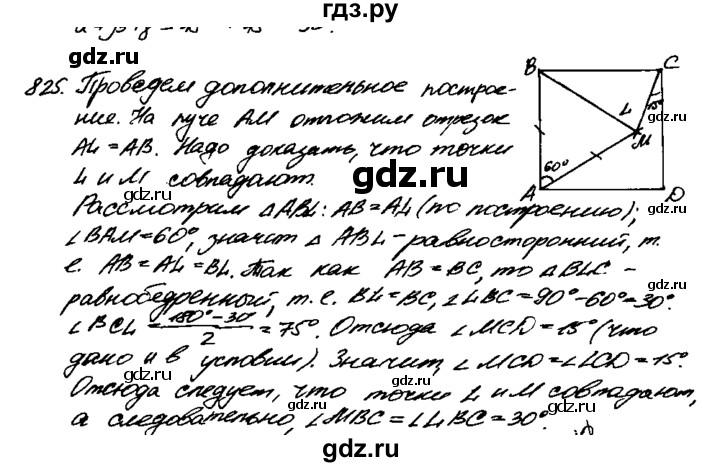 гдз.ру
825. Проведем дополнительное построе-
ние. На луче AM отложим отрезок
AL=AB. Надо доказать, что точки
L и M совпадают.
Рассмотрим △ABL: AB=AL (по построению);
∠BAM=60°, значит △ ABL-равносторонний, т.
е. AB=AL=BL. Так как AB=BC, то △BLC -
равнобедренный, т.е. BL=BC, ∠LBC=90°-60°=30°.
∠BCL = (180°-30°)/2 = 75°. Отсюда ∠MCD=15° (что
дано и в условии). Значит, ∠MCD=∠LCD=15°.
Отсюда следует, что точки L и M совпадают,
а следовательно, ∠MBC=∠LBC=30°.
B
C
L
15°
M
60°
A
D
gdz.ru
gdz.ru
gdz.ru
gdz.ru
gdz.ru
gdz.ru
gdz.ru
gdz.ru
gdz.ru
gdz.ru
gdz.ru
gdz.ru
gdz.ru
gdz.ru